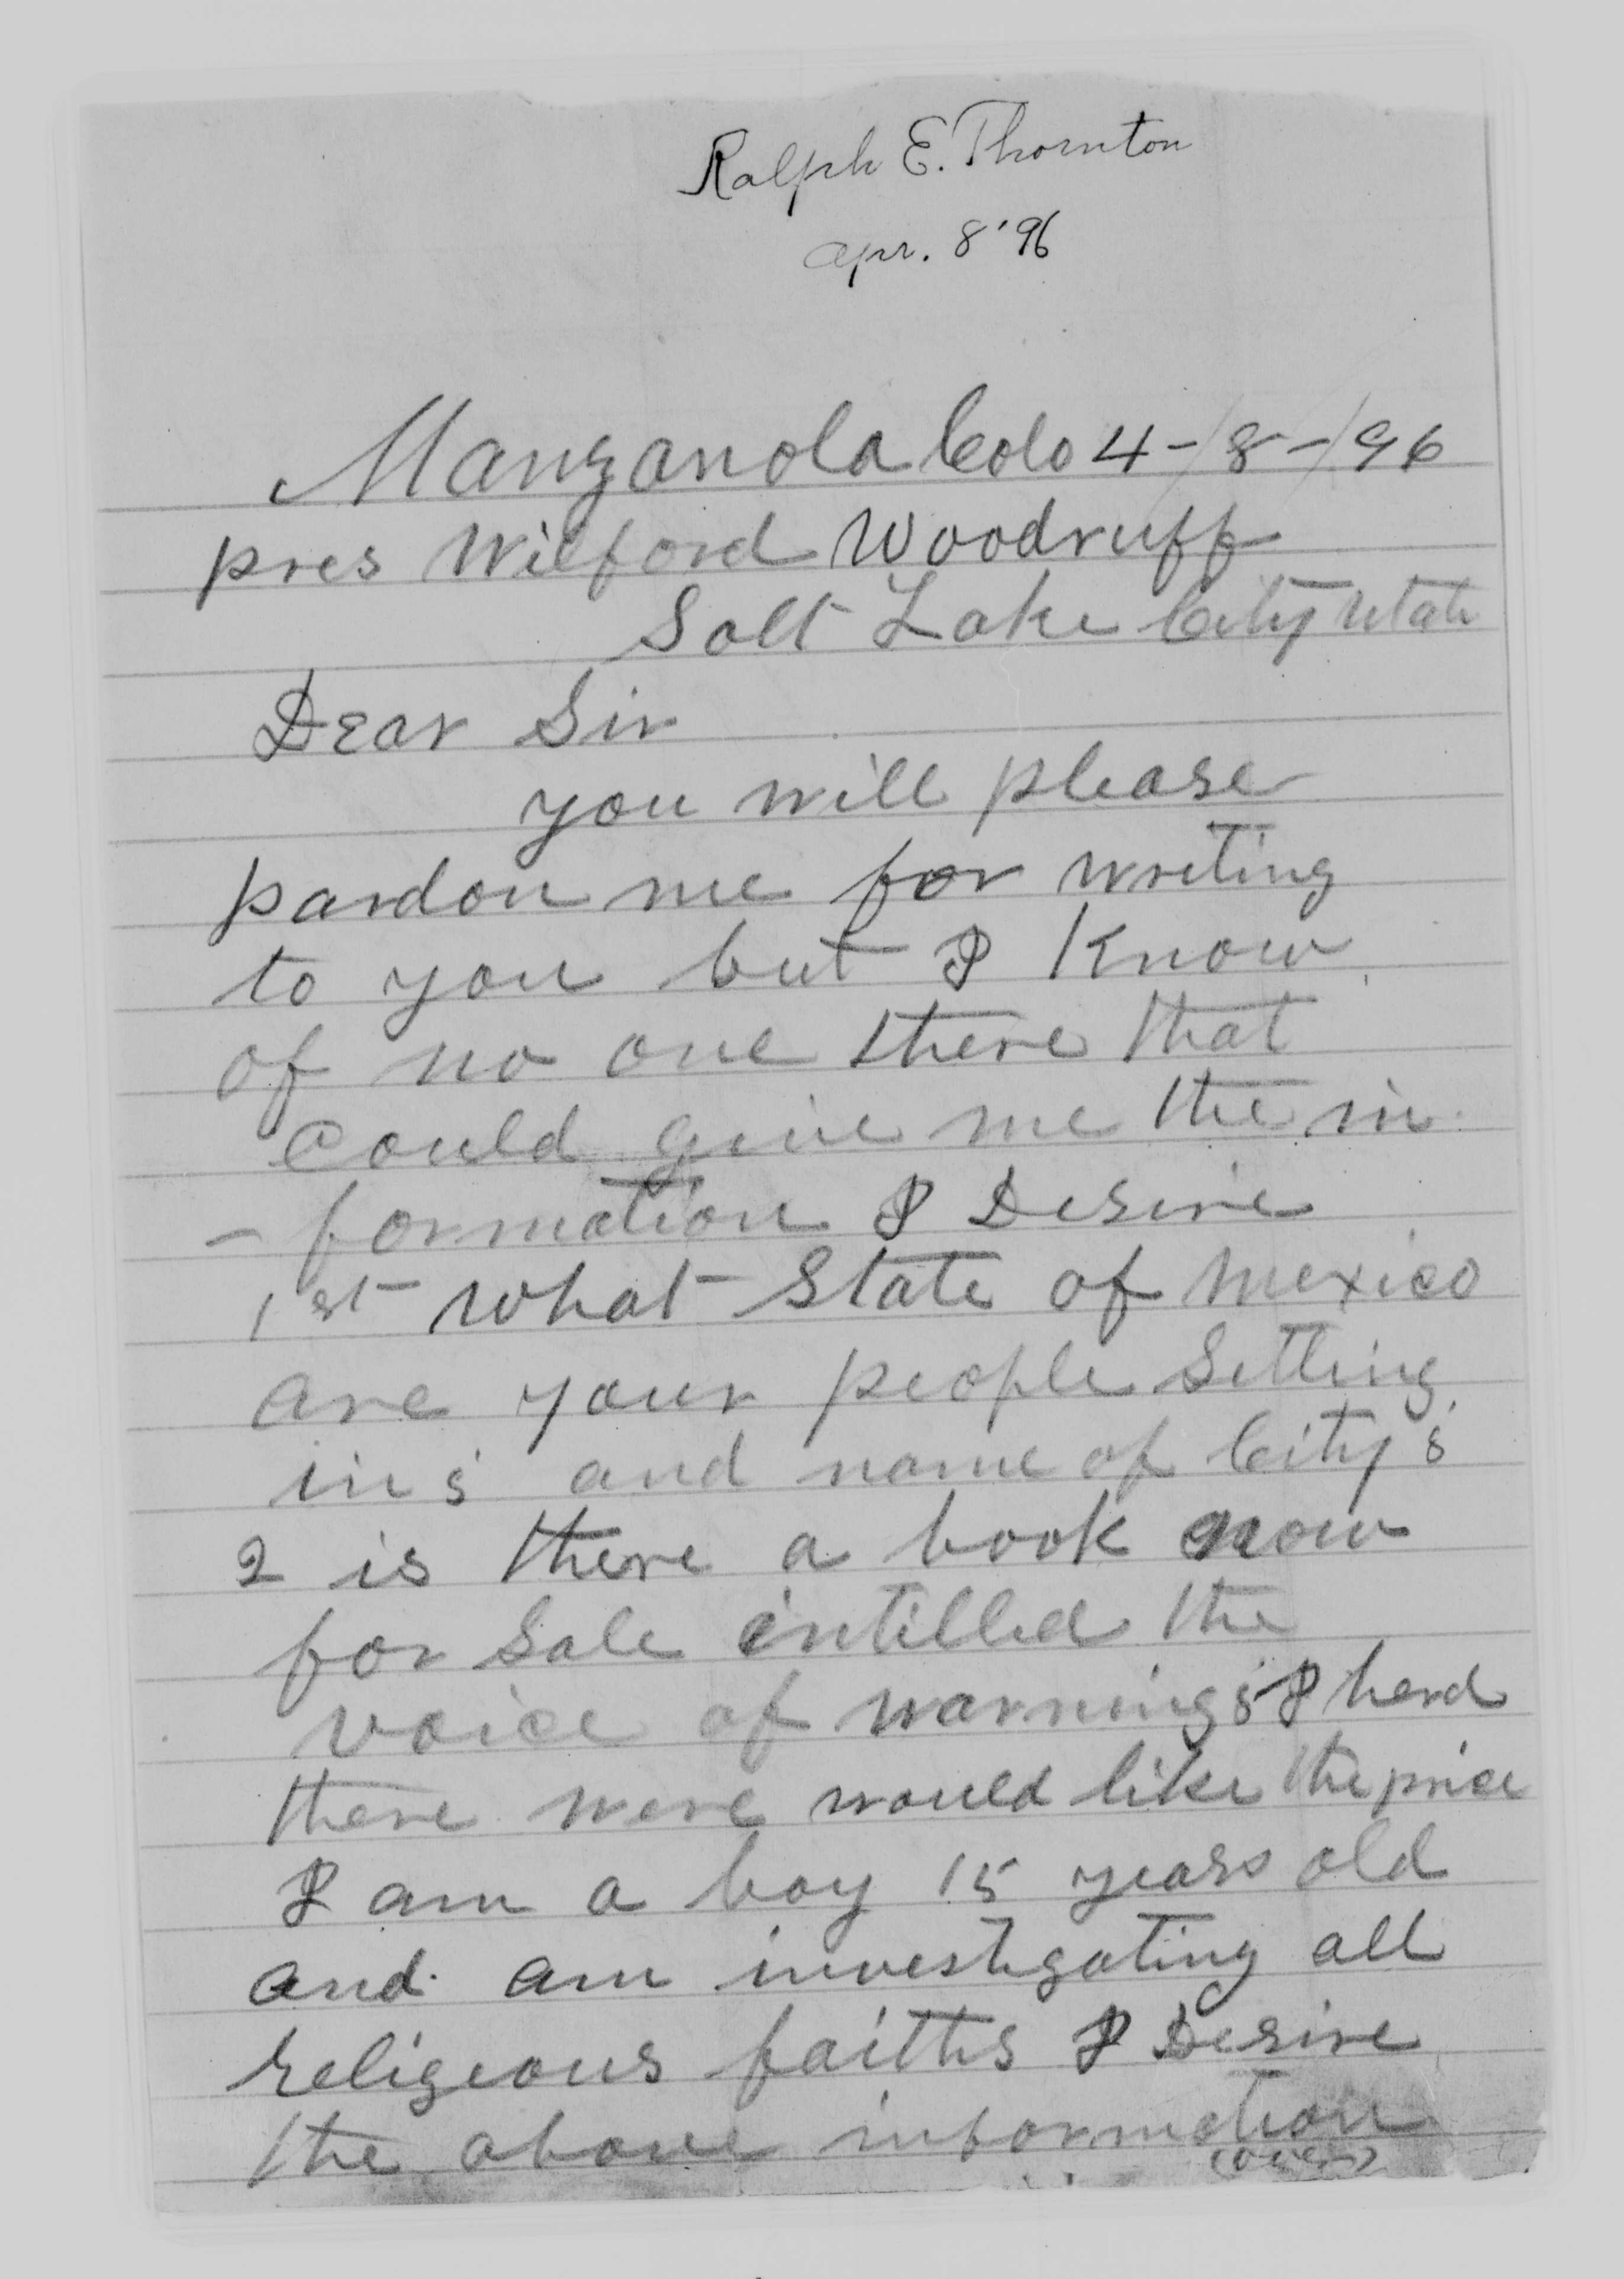 Ralph E. Thornton
apr. 8 '96
Manzanola Colo 4-/8-/96
pres Wilford Woodruff
Salt Lake City Utah
Dear Sir
you will please
pardon me for writing
to you but I Know
of no one there that
Could give me the in
- formation I Desire
1st What State of Mexico
are your people Setting
in ; and name of City's
2 is there a book now
for Sale intilled the
voice of warning ; I herd
there were would like the price
I am a boy 15 years old
and am investigating all
religeous faiths I Desire
the above information
(over)